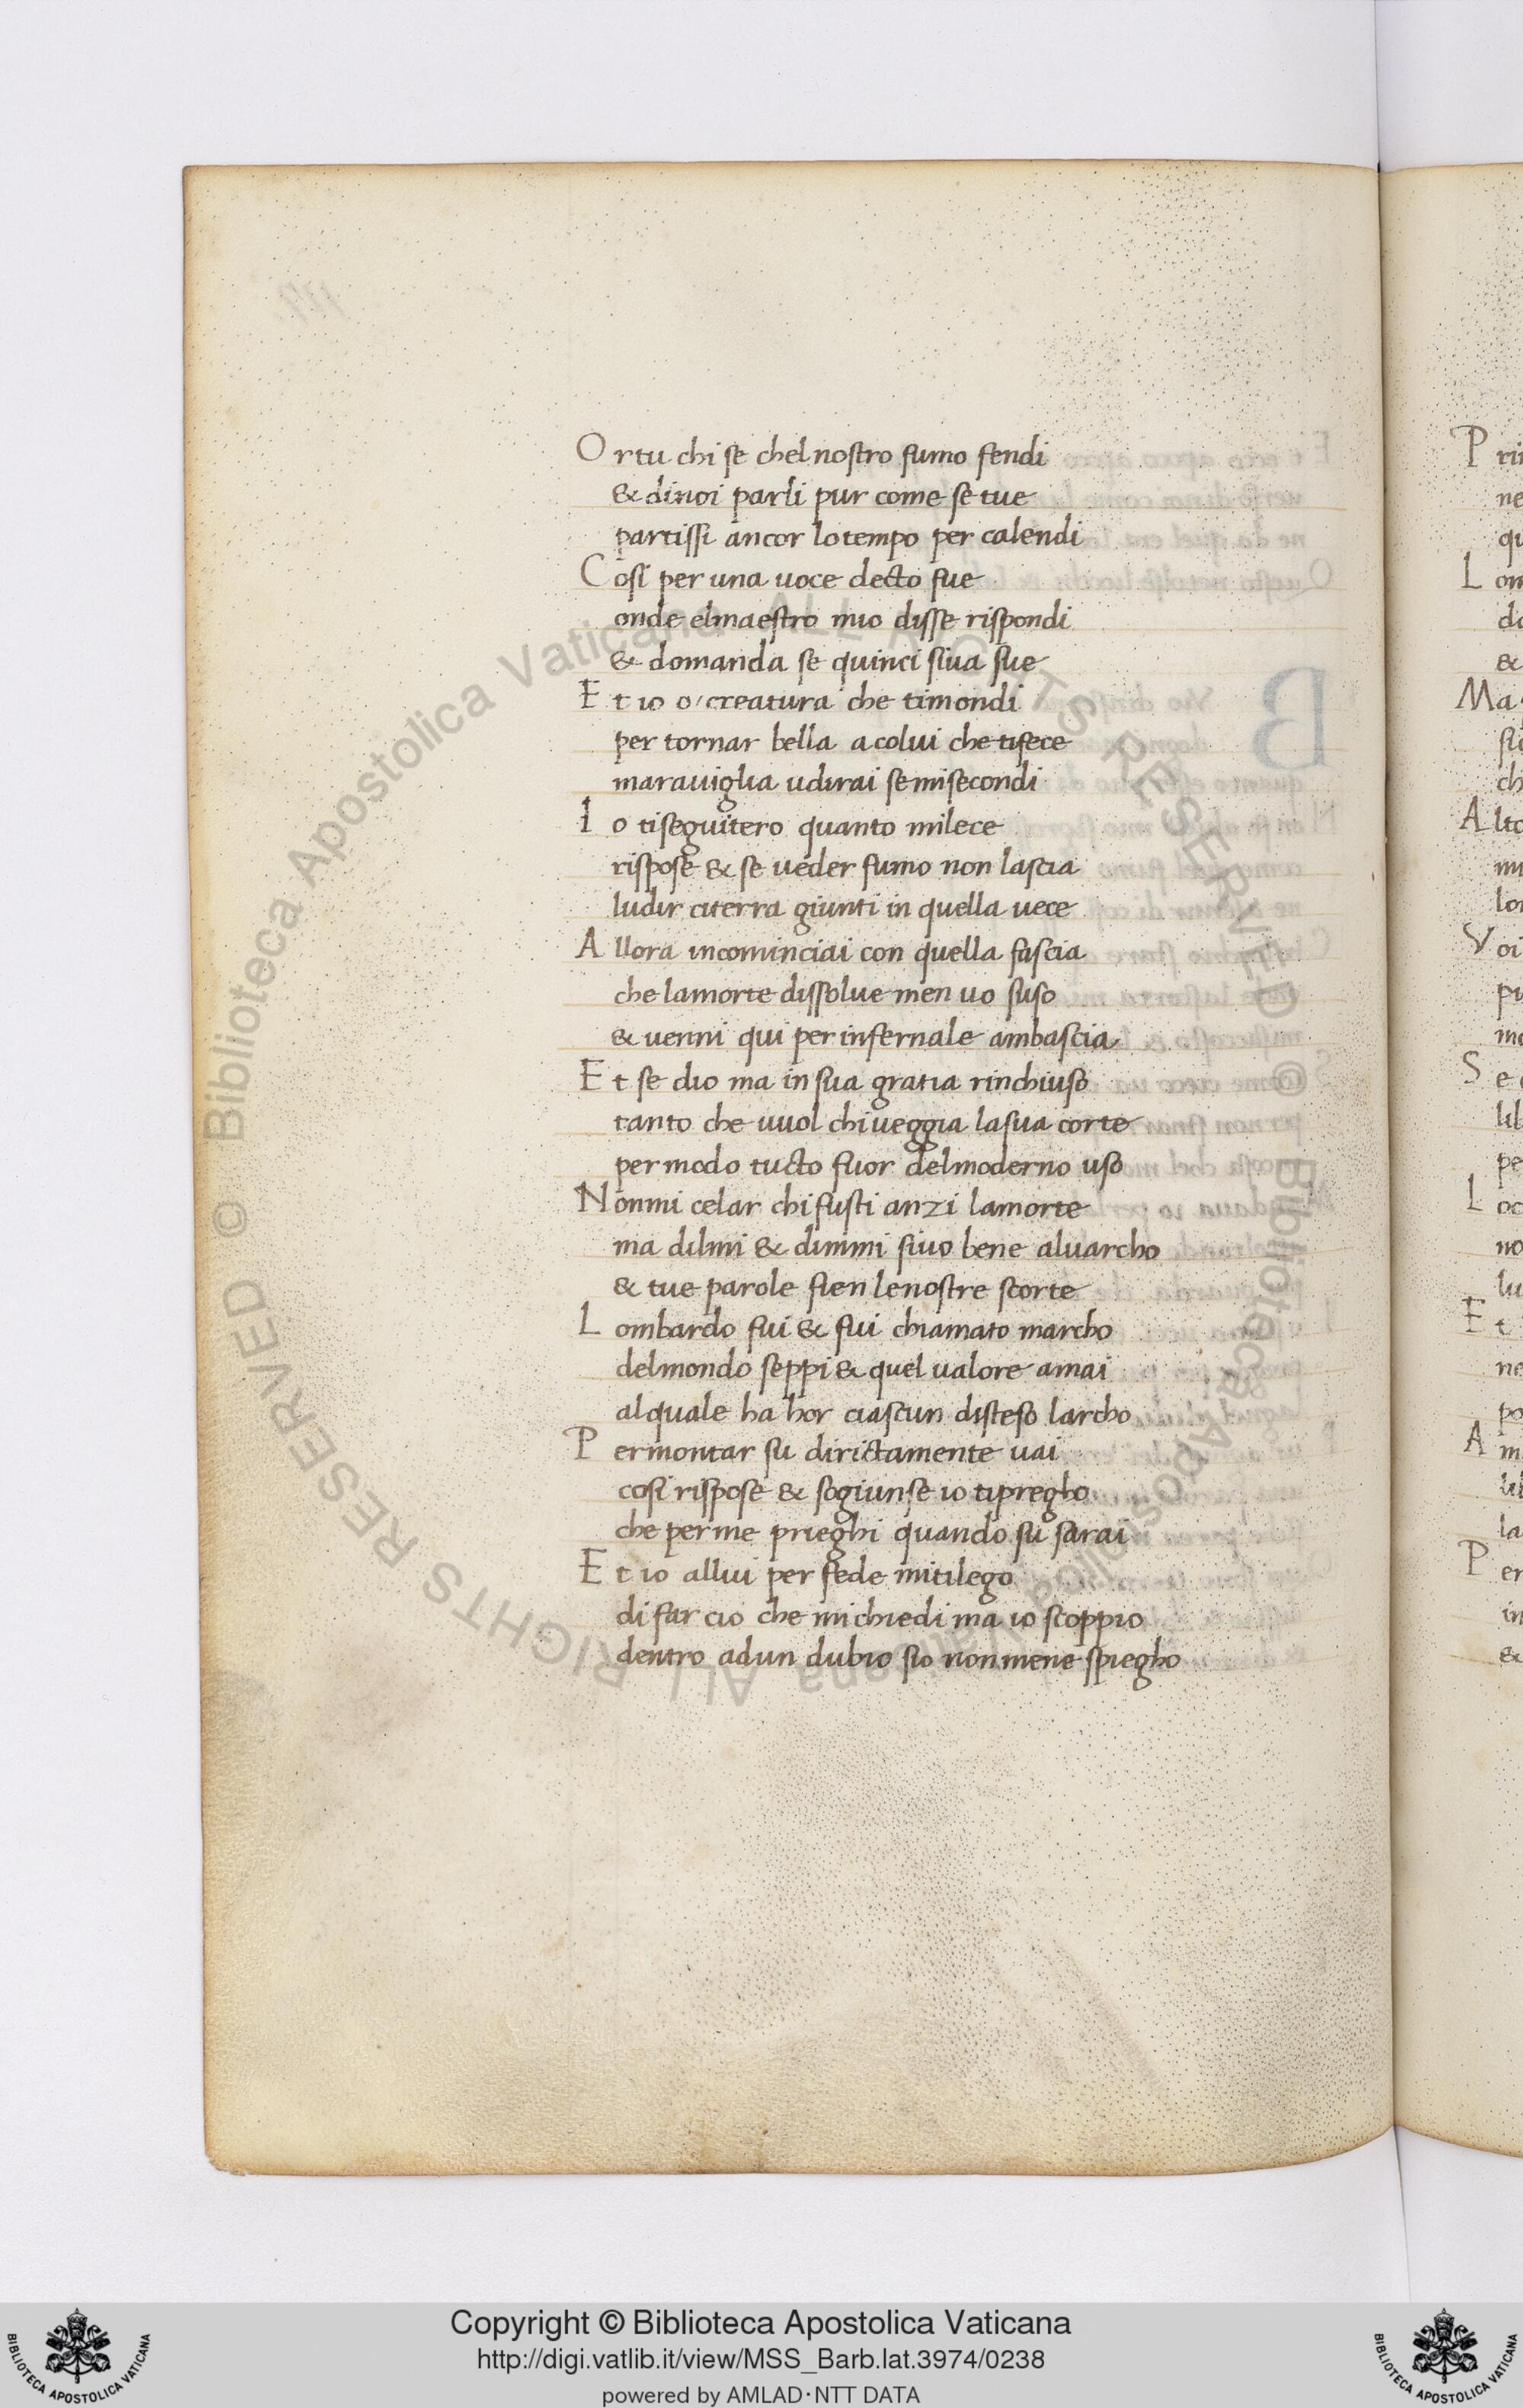 Ortu chi se chel nostro fumo fendi
& dinoi parli pur come se tue
partissi ancor lo tempo per calendi
Cosi per una uoce decto fue
onde elmaestro mio disse rispondi
& domanda se quinci siua sue
Et io o/creatura che timondi
per tornar bella acolui che tifece
marauiglia udirai semisecondi
Io tiseguitero quanto milece
rispose & se ueder fumo non lascia
ludir citerra giunti in quella uece
Allora incominciai con quella fascia
che lamorte dissolue men uo suso
& uenni qui per infernale ambascia
Et se dio ma in sua gratia rinchiuso
tanto che uuol chi ueggia lasua corte
per modo tucto fuor delmoderno uso
Nonmi celar chi fusti anzi lamorte
ma dilmi & dimmi siuo bene aluarcho
& tue parole fien lenostre scorte
Lombardo fui & fui chiamato marcho
delmondo seppi & quel ualore amai
alquale ha hor ciascun disteso larcho
Permontar su dirictamente uai
cosi rispose & sogiunse io tipregho
che perme prieghi quando su sarai
Et io allui per fede mitilego
di far cio che mi chiedi ma io scoppio
dentro adun dubio sio nonmene spiegho
Copyright © Biblioteca Apostolica Vaticana
http://digi.vatlib.it/view/MSS_Barb.lat.3974/0238
powered by AMLAD·NTT DATA